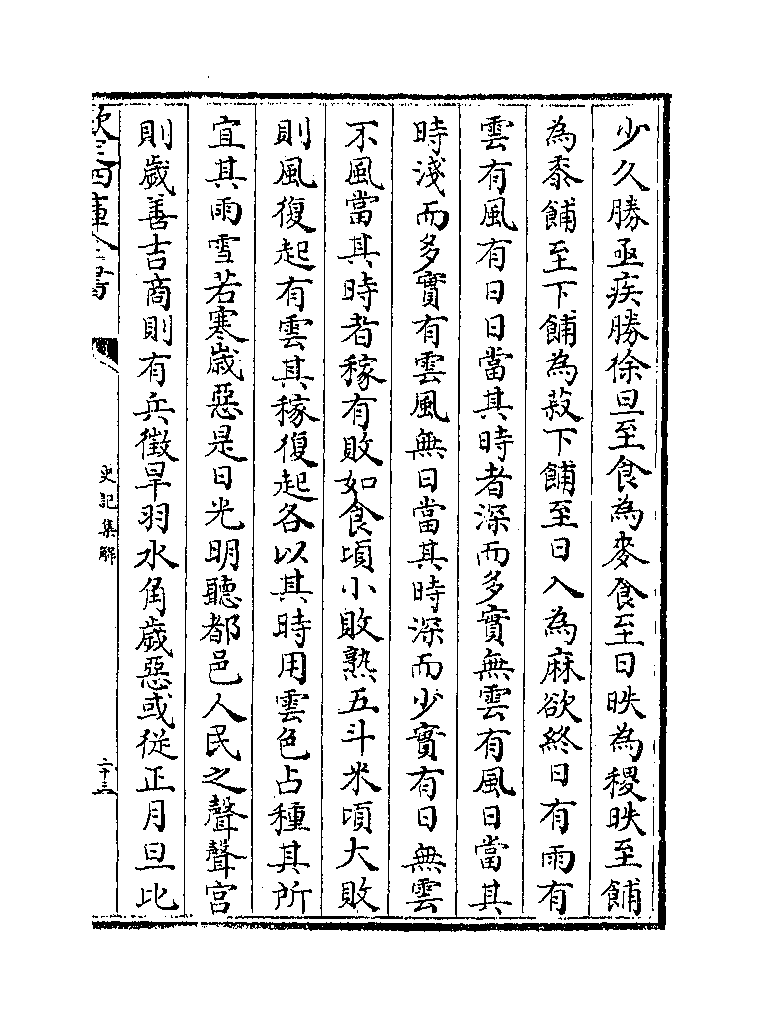 少久勝亟疾勝徐旦至食為麥食至日昳為稷昳至餔
為黍餔至下餔為菽下餔至日入為麻欲終日有雨有
雲有風有日日當其時者深而多實無雲有風日當其
時淺而多實有雲風無日當其時深而少實有日無雲
不風當其時者稼有敗如食頃小敗熟五斗米頃大敗
則風復起有雲其稼復起各以其時用雲色占種其所
宜其雨雪若寒歲惡是日光明聽都邑人民之聲聲宮
則歲善吉商則有兵徵旱羽水角歲惡或從正月旦比
欽定四庫全書
史記集解
二十三